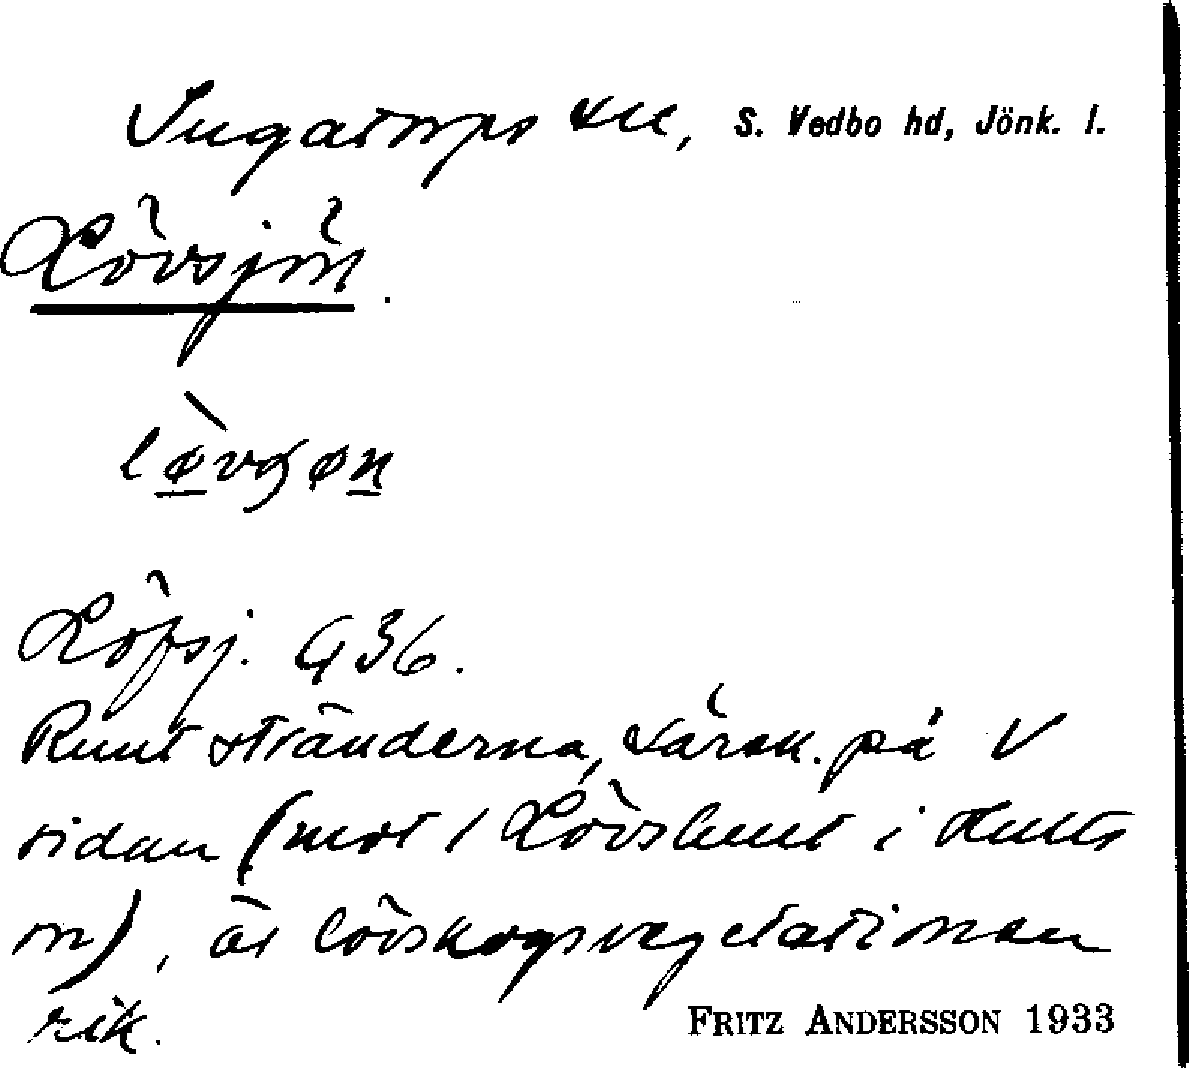 Ingatorps sn, S. Vedbo hd, Jönk. l.
Lövsjön.
lø̀vʃøn
Löfsj. G 36.
Runt stränderna, särsk. på V
sidan (mot / Lövshult i Hults
sn), är lövskogsvegetationen
rik.
FRITZ ANDERSSON 1933